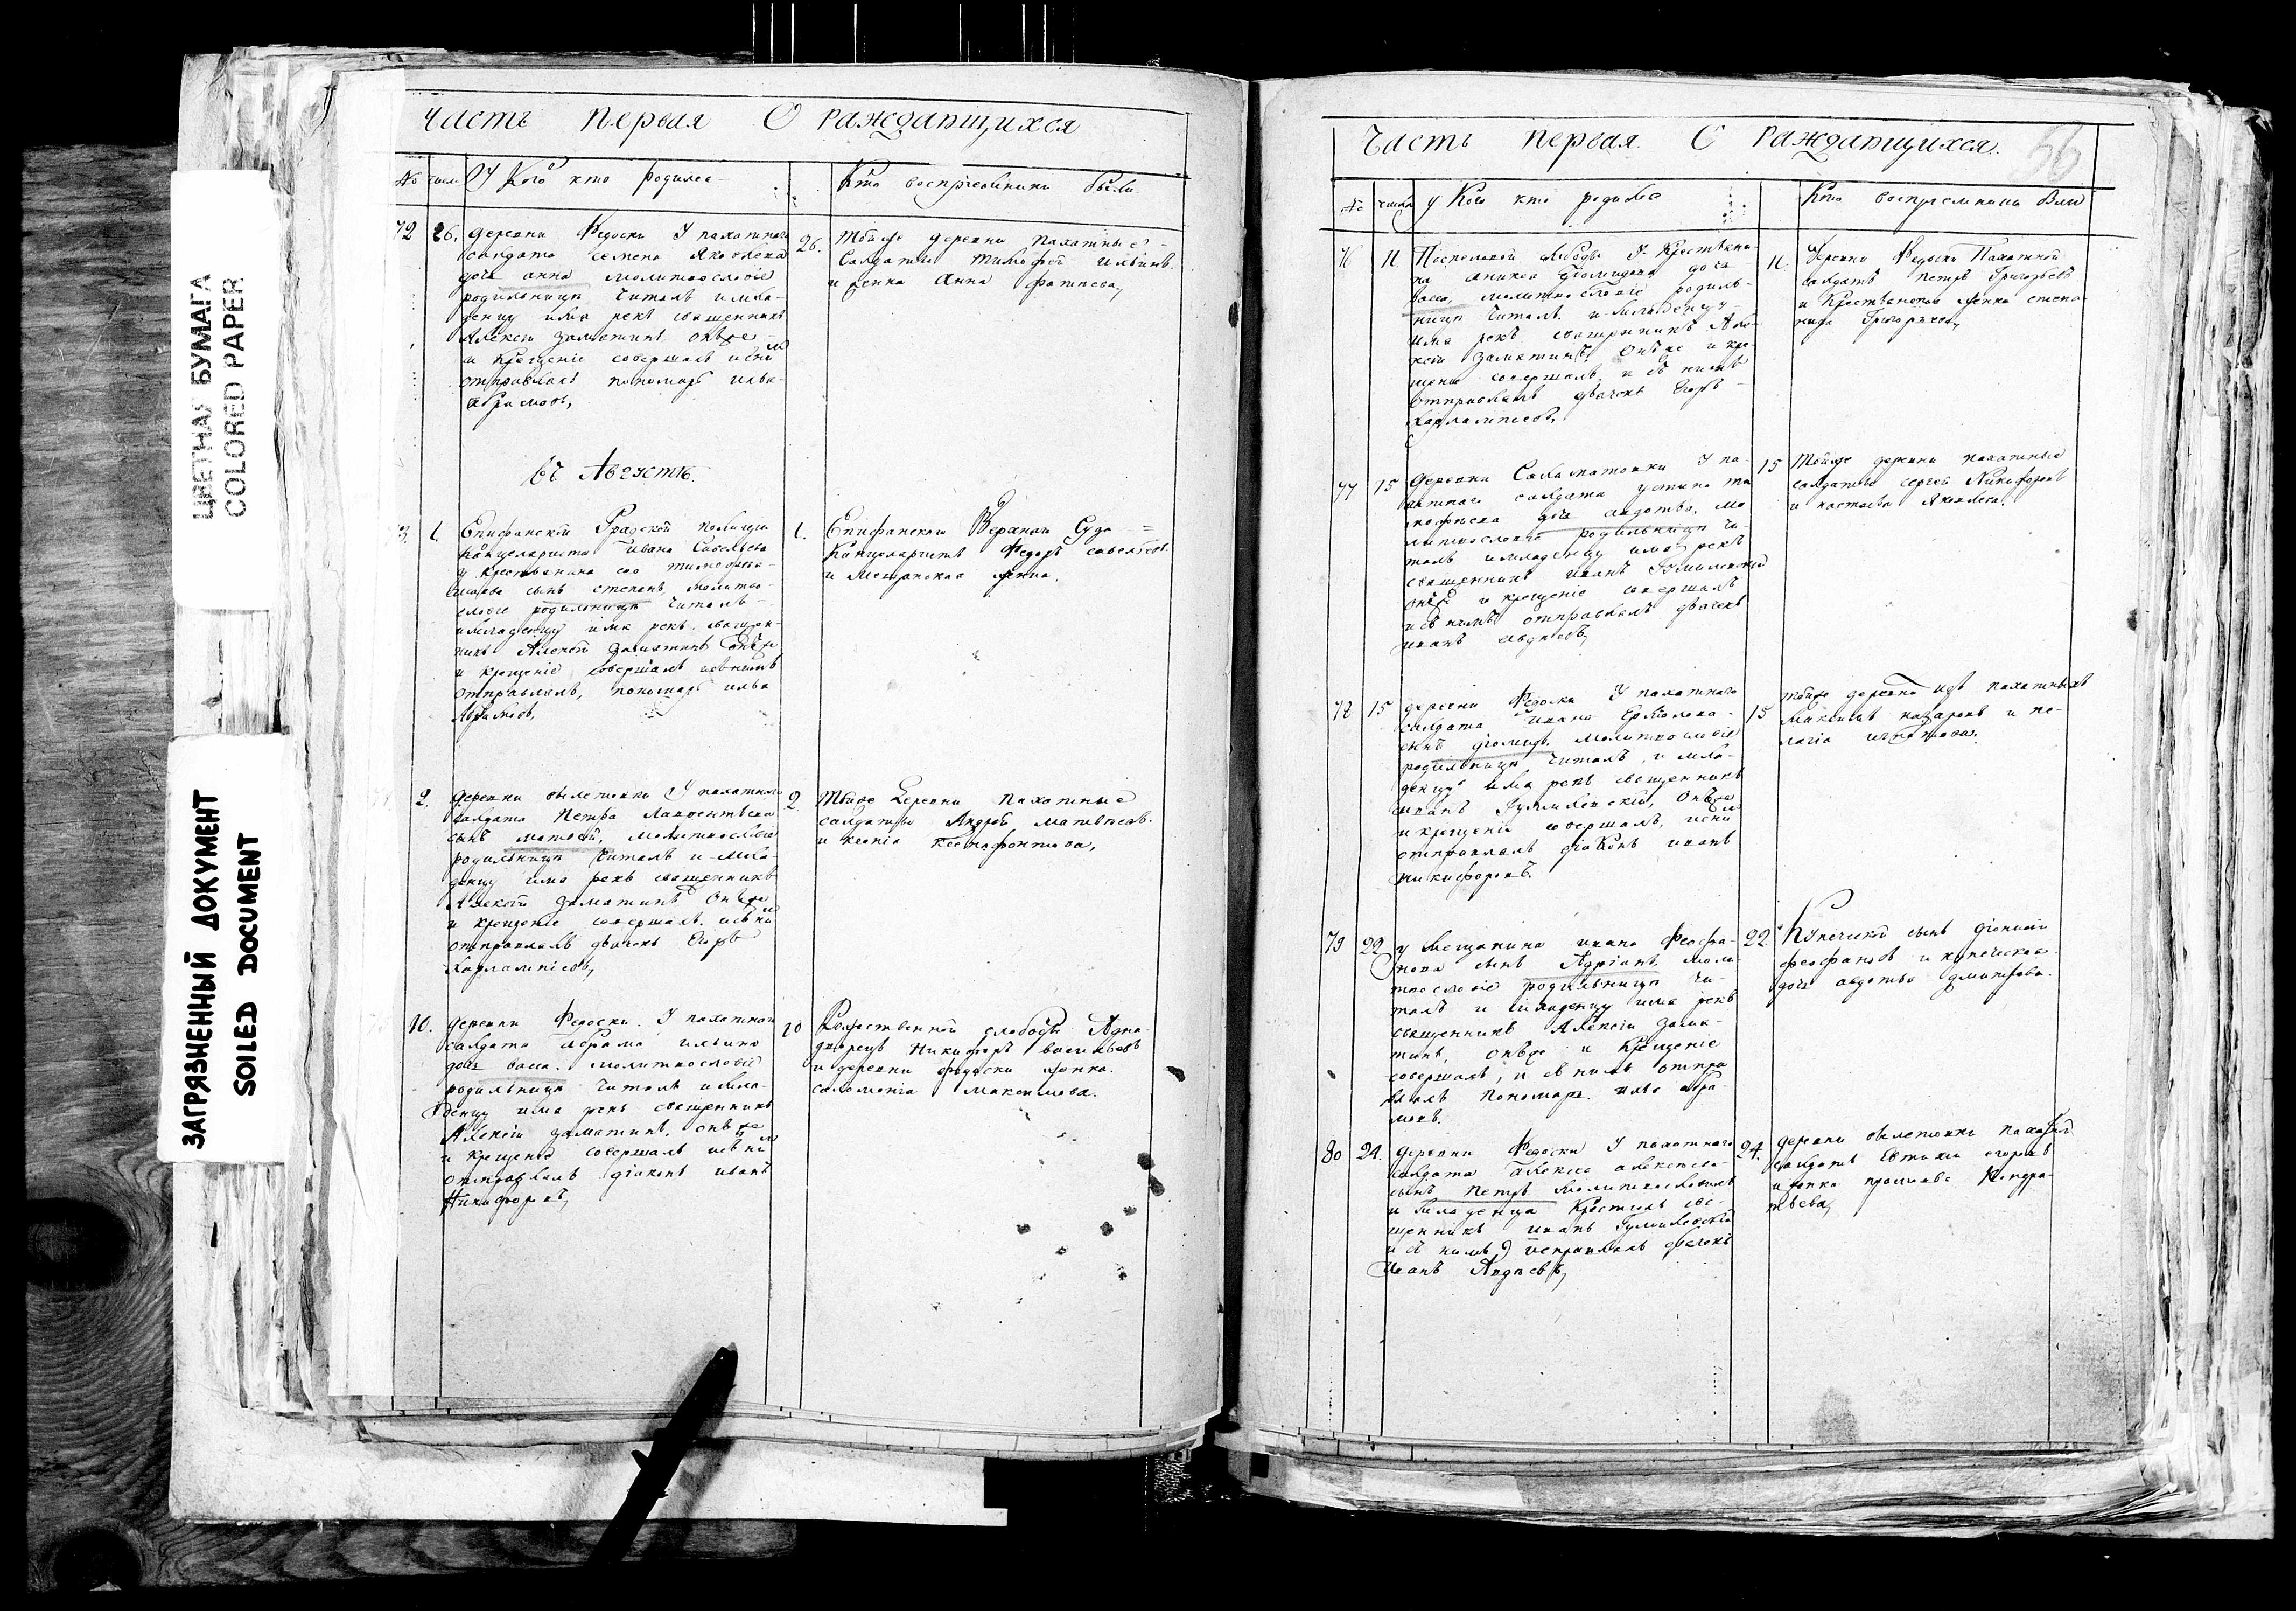 ЦВЕТНАЯ БУМАГА
COLORED PAPER
ЗАГРЯЗНЕННЫЙ ДОКУМЕНТ
SOILED DOCUMENT
Часть Первая О раждающихся
№ числ У Кого кто родился
Кто восприемники были
72 26. деревни Федоски У пахатнаго
салдата Семена Яковлева
дочь анна молитвословие
родильнице читалъ и мла-
денцу имя рекъ священникъ
Алексей Замятинъ, онъ же
и крещение совершалъ
отправлялъ пономарь илья
Абрамовъ,
26. Тойже деревни пахатные
салдаты Тимофей ильинъ
и женка Анна
въ Августѣ.
3. 1. Епифанской Градской полиции
Канцеляриста ивана Савельева
сынъ степанъ, молитво-
словие родильнице читалъ
и младенцу имя рекъ священ-
никъ Алексей Замятинъ онъ же
и крещение совершалъ и съ нимъ
отправлялъ, пономарь илья
Абрамовъ,
1. Епифанской Суда
Канцеляристъ Федоръ савельевъ
и Мещанская женка.
2. деревни У пахатнаго
салдата Петра Лаврентьева
сынъ матвей, молитвословие
родильнице читалъ и мла-
денцу имя рекъ священникъ
Алексей Замятинъ Онъ же
и крещение совершалъ
отправлялъ дьячекъ Егоръ
Харлампиевъ,
2. Тойже деревни пахатные
салдаты Андрей Матвеевъ
и ксения ксенофонтова,
10. деревни Федоски У пахатнаго
салдата Абрама ильина
дочь васа. молитвословие
родильнице читалъ и мла-
денцу имя рекъ священникъ
Алексей Замятинъ. онъ же
и крещение совершалъ
отправлялъ диаконъ иванъ
Никифоровъ,
10 слободы Адно-
дворецъ Никифоръ васильевъ
и деревни федоски женка
саломония Максимова.
Часть Первая. О Раждающихся.
56
№ числа у Кого кто родился
Кто восприемники были
76 11. слободы У Крестьяни-
на дочь
васа, молитвословие родиль-
нице читалъ и младенцу
имя рекъ священникъ Але-
ксей Замятинъ. Онъ же и кре-
щение совершалъ, и съ нимъ
отправлялъ дьячекъ Егоръ
Харлампиевъ,
11. Деревни Федоски Пахатной
салдатъ Петръ Григорьевъ
и Крестьянская женка степа-
нида Григорьева,
77 15 Деревни Саламатовки У па-
хатнаго салдата
дочь авдотья. мо-
литвословие родильнице чи-
талъ и младенцу имя рекъ
священникъ иванъ
онъ же и крещение совершалъ
и съ нимъ отправлялъ дьячекъ
иванъ авдиевъ,
15 Тойже деревни пахатные
салдаты сергей Никифоровъ
и настасья Яковлева.
78 15 деревни Федоски У пахатнаго
салдата ивана Ермолова
сынъ диомидъ. молитвословие
родильнице читалъ, и мла-
денцу имя рекъ священникъ
иванъ Онъ же
и крещение совершалъ,
отправлялъ диаконъ иванъ
никифоровъ.
15 тойже деревни изъ пахатныхъ
Максимъ назаровъ и пе-
лагия игнатова.
79 22 у Мещанина ивана Феофа-
нова сынъ Адрианъ. моли-
твословие родильнице чи-
талъ и младенцу имя рекъ
священникъ Алексей Замя-
тинъ, онъ же и крещение
совершалъ, и съ нимъ отпра-
влялъ Пономарь илья абра-
мовъ.
22. Купеческой сынъ дионисий
феофановъ и купеческая
дочь авдотья дмитрева.
80 24. деревни Федоски У пахатнаго
салдата алексея алексеева
сынъ Петръ молитвословилъ
и младенца Крестилъ свя-
щенникъ иванъ
и съ нимъ исправлялъ дьячекъ
Иванъ Авдиевъ,
24. деревни
салдатъ Евтихий егоровъ
и женка Кондра-
тьева,